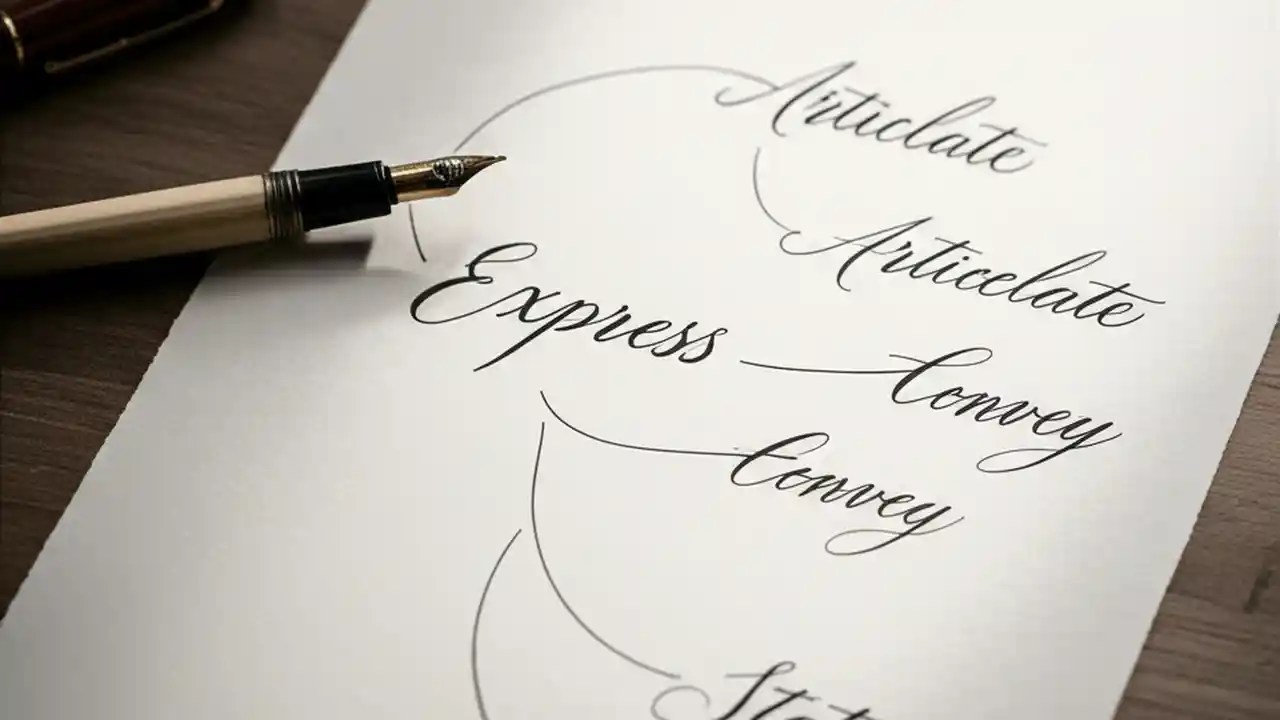 Articlate
Articelate
Express
Convey
Convey